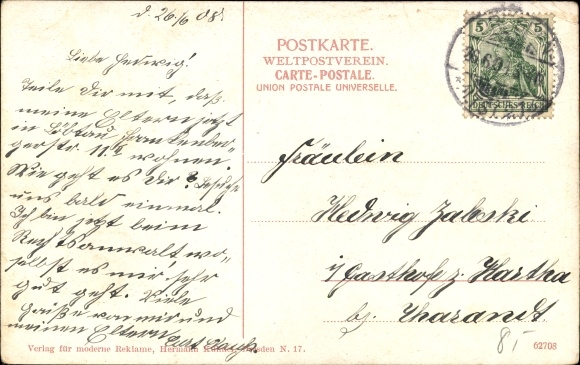 d. 26./6 08.
Liebe Hedwig!
Teile Dir mit, daß
meine Eltern jetzt
in Löbtau Frankenber-
gerstr. 11 II wohnen.
Wie geht es Dir? Besuche
uns bald einmal.
Ich bin jetzt beim
Rechtsanwalt wo-
selbst es mir sehr
gut geht. Viele
Grüße von mir und
meinen Eltern
Verlag für moderne Reklame, Hermann Dresden N. 17.
POSTKARTE.
WELTPOSTVEREIN.
CARTE-POSTALE.
UNION POSTALE UNIVERSELLE.
5 5
DEUTSCHES REICH
Fräulein
Hedwig Zaleski
i/ Gasthof z. Hartha
bz. Tharandt
8,-
62708